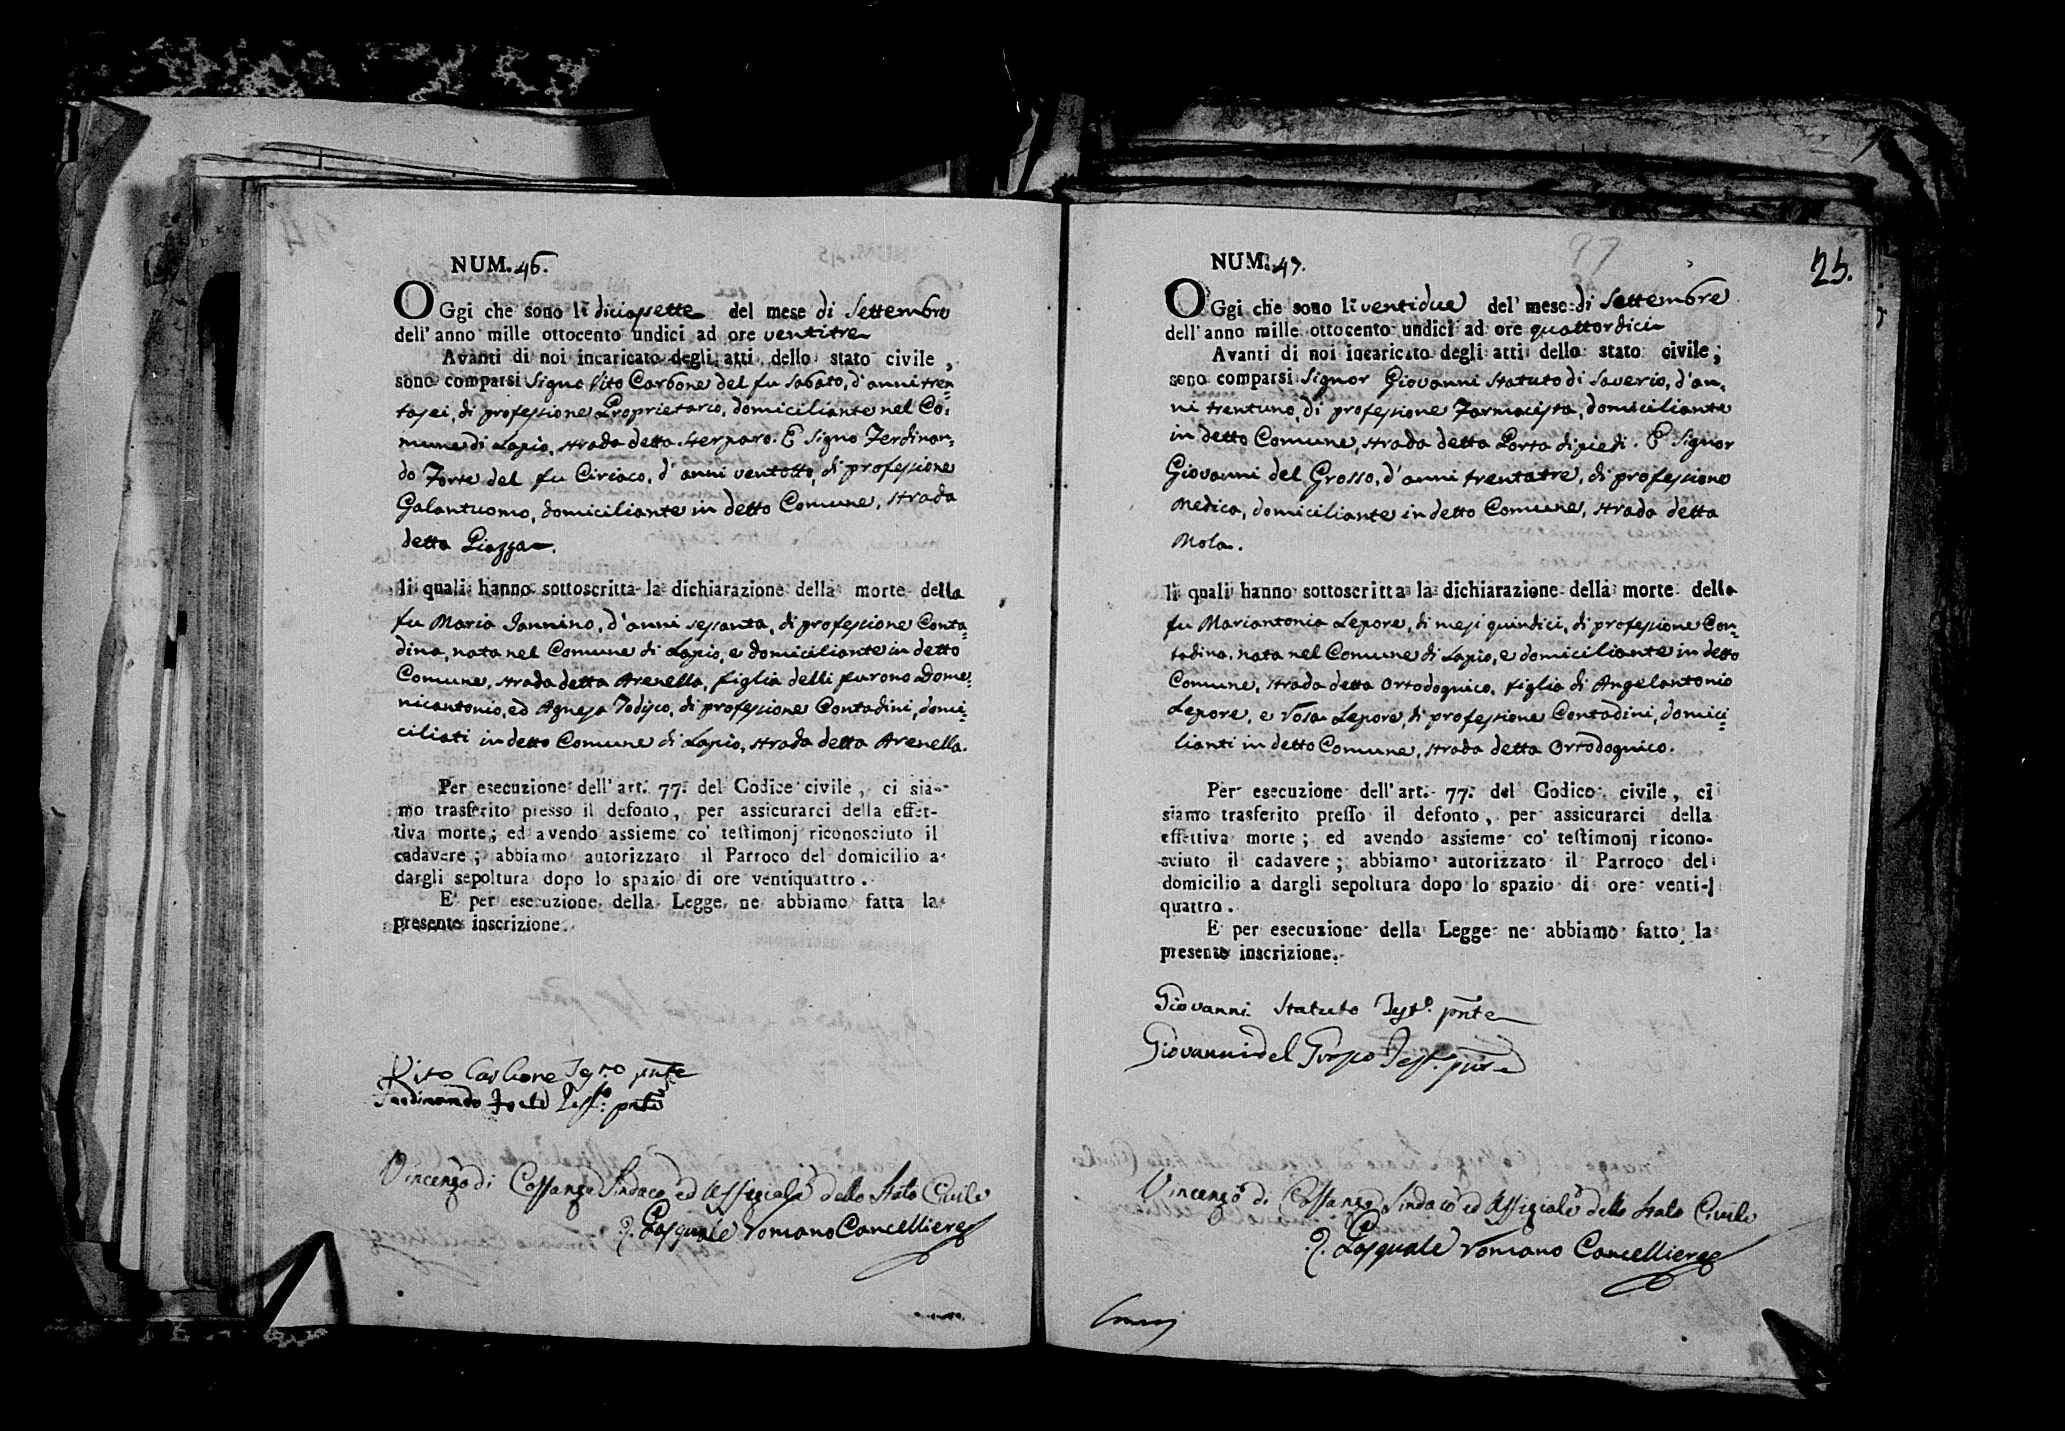 NUM. 46.
OGgi che sono li diciassette del mese di Settembre
dell' anno mille ottocento undici ad ore ventitre
Avanti di noi incaricato degli atti dello stato civile,
sono comparsi Signo Vito Carbone del fu Sabato, d' anni tren=
tasei, di professione Proprietario, domiciliante nel Co=
mune di Lapio, strada detta Sterparo. E Signo Ferdinan=
do Forte del fu Ciriaco, d' anni ventotto, di professione
Galantuomo, domiciliante in detto Comune, strada
detta Piazza.
li quali hanno sottoscritta la dichiarazione della morte della
fu Maria Iannino, d'anni sessanta, di professione Conta=
dina, nata nel Comune di Lapio, e domiciliante in detto
Comune, strada detta Arenella, figlia delli furono Dome=
nicantonio, ed Agnesa Todisco, di professione Contadini, domi=
ciliati in detto Comune di Lapio, strada detta Arenella.
Per esecuzione dell' art. 77. del Codice civile, ci sia-
mo trasferito presso il defonto, per assicurarci della effet-
tiva morte; ed avendo assieme co' testimonj riconosciuto il
cadavere; abbiamo autorizzato il Parroco del domicilio a
dargli sepoltura dopo lo spazio di ore ventiquattro.
E per esecuzione della Legge ne abbiamo fatta la
presente inscrizione.
Vito Carbone Testo pnte
Ferdinando Forte Testo: pnte
Vincenzo di Cossanzo Sindaco ed Uffiziale dello Stato Civile
D. Pasquale Romano Cancelliere
NUM. 47.
25.
97
OGgi che sono li ventidue del mese di Settembre
dell' anno mille ottocento undici ad ore quattordici
Avanti di noi incaricato degli atti dello stato civile;
sono comparsi Signor Giovanni Statuto di Saverio, d'an=
ni trentuno, di professione Farmacista, domiciliante
in detto Comune, strada detta Porta di piedi. E Signor
Giovanni del Grosso, d'anni trentatre, di professione
Medico, domiciliante in detto Comune, strada detta
Mola.
li quali hanno sottoscritta la dichiarazione della morte della
fu Mariantonia Lepore, di mesi quindici, di professione Con=
tadina, nata nel Comune di Lapio, e domiciliante in detto
Comune, strada detta Ortodognico, figlia di Angelantonio
Lepore, e Rosa Lepore, di professione Contadini, domici=
lianti in detto Comune, strada detta Ortodognico.
Per esecuzione dell' art. 77. del Codico civile, ci
siamo trasferito presso il defonto, per assicurarci della
effettiva morte; ed avendo assieme co' testimonj ricono-
sciuto il cadavere; abbiamo autorizzato il Parroco del
domicilio a dargli sepoltura dopo lo spazio di ore venti-
quattro.
E per esecuzione della Legge ne abbiamo fatto la
presente inscrizione.
Giovanni Statuto Testo. pnte
Giovanni del Grosso Test. pnte
Vincenzo di Cossanzo Sindaco ed Uffiziale dello Stato Civile
D. Pasquale Romano Cancelliere